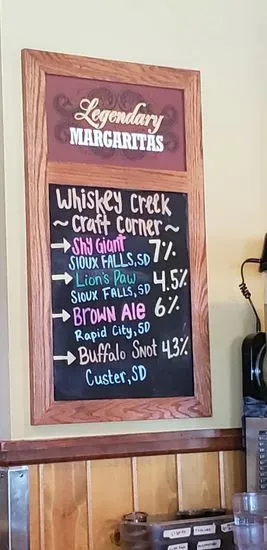 Legendary
MARGARITAS
Whiskey Creek
~ Craft Corner ~
→ Shy Giant 7%
SIOUX FALLS, SD
→ Lion's Paw 4.5%
SIOUX FALLS, SD
→ BROWN ALE 6%
Rapid City, SD
→ Buffalo Snot 4.3%
Custer, SD